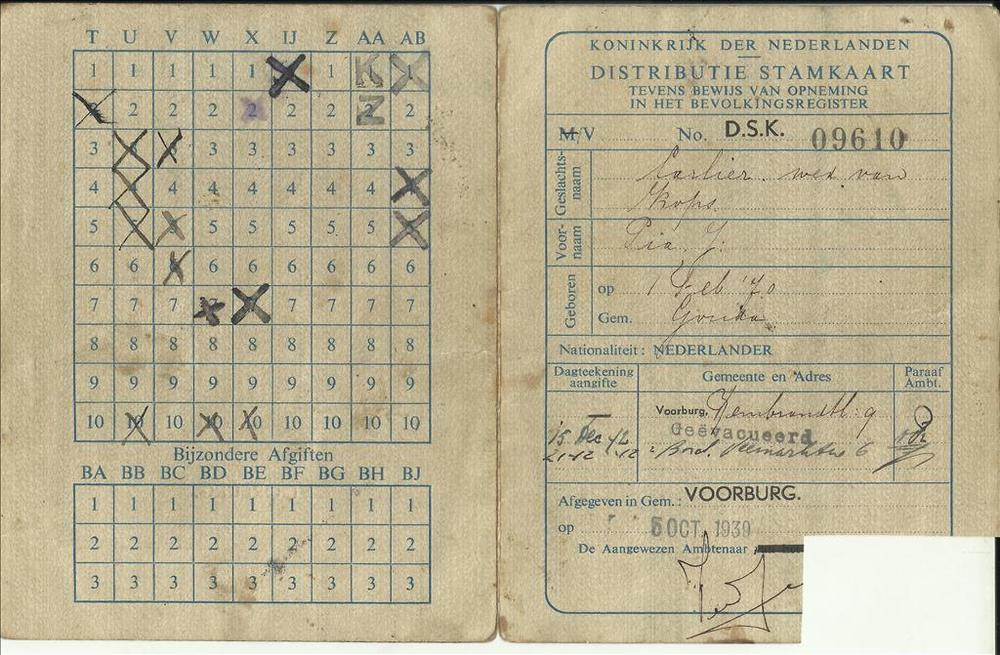 T U V W X IJ Z AA AB
1 1 1 1 1 1 K 1
2 2 2 2 2 2 2 Z 2
3 3 3 3 3 3 3 3
4 4 4 4 4 4 4 4
5 5 5 5 5 5 5
6 6 6 6 6 6 6 6 6
7 7 7 7 7 7 7
8 8 8 8 8 8 8 8 8
9 9 9 9 9 9 9 9 9
10 10 10 10 10 10 10 10 10
Bijzondere Afgiften
BA BB BC BD BE BF BG BH BJ
1 1 1 1 1 1 1 1 1
2 2 2 2 2 2 2 2 2
3 3 3 3 3 3 3 3 3
KONINKRIJK DER NEDERLANDEN
DISTRIBUTIE STAMKAART
TEVENS BEWIJS VAN OPNEMING
IN HET BEVOLKINGSREGISTER
M/V No. D.S.K. 09610
Geslachts-
naam
Carlier. wed van
Kops
Voor-
naam
Pia. J.
Geboren
op 1 Feb '70
Gem. Gouda
Nationaliteit: NEDERLANDER
Dagteekening
aangifte
Gemeente en Adres
Paraaf
Ambt.
Voorburg, Rembrandtl. 9
15 Dec 42 Geëvacueerd
21-12 '42 6
Afgegeven in Gem.: VOORBURG.
op 5 OCT. 1939
De Aangewezen Ambtenaar